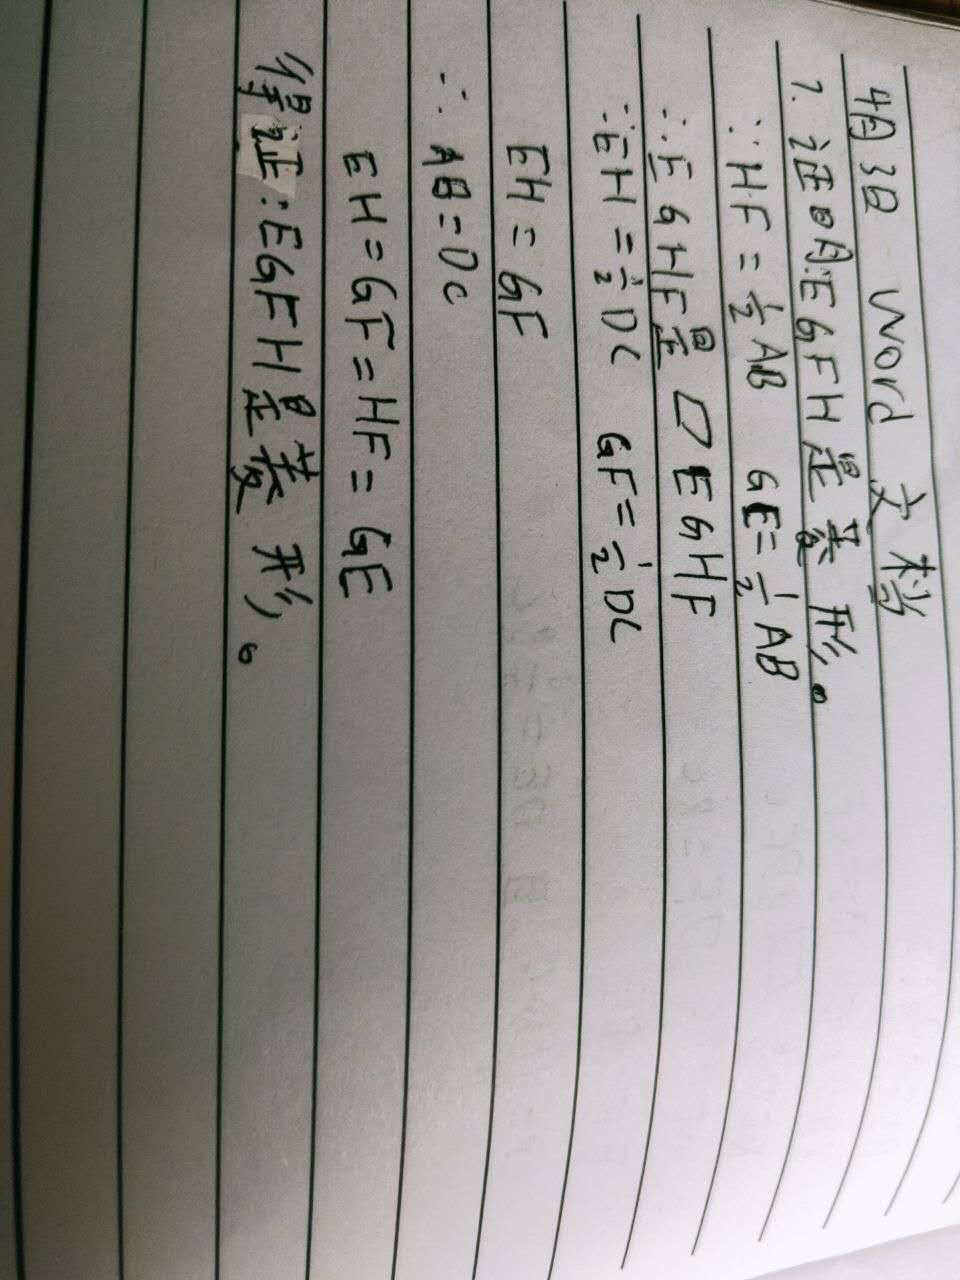 4月3日 Word 文档
1. 证明:EGFH是菱形。
∵HF=½AB GE=½AB
∴EGHF是▱EGHF
∵EH=½DC GF=½DC
EH=GF
∴AB=DC
EH=GF=HF=GE
得证:EGFH是菱形。